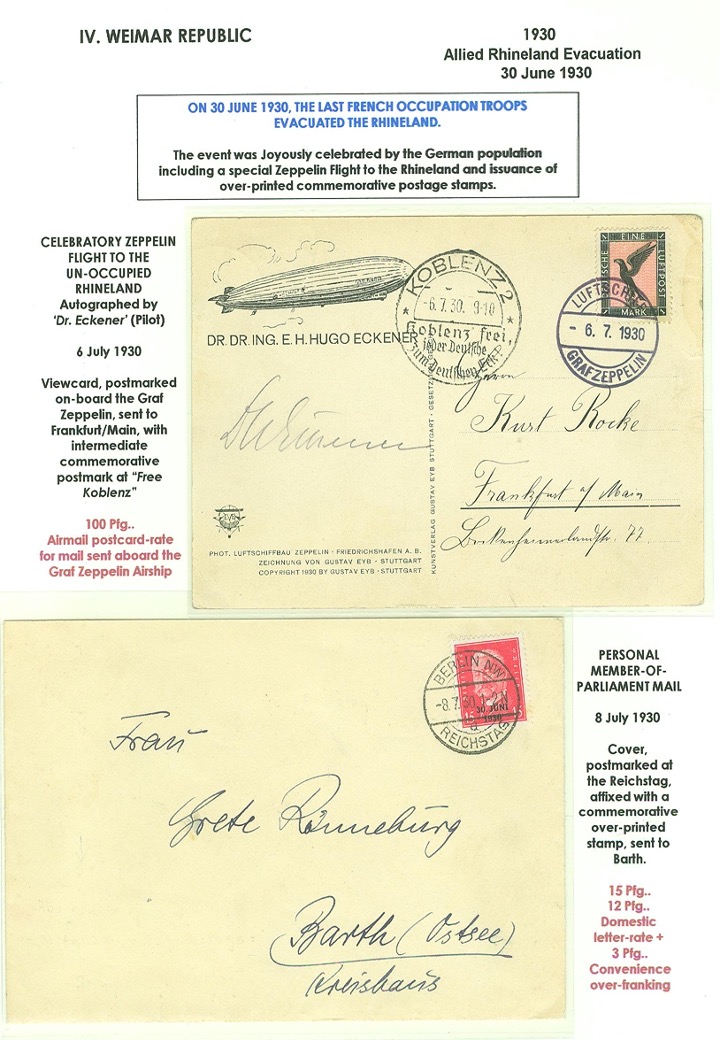 IV. WEIMAR REPUBLIC
1930
Allied Rhineland Evacuation
30 June 1930
ON 30 JUNE 1930, THE LAST FRENCH OCCUPATION TROOPS
EVACUATED THE RHINELAND.
The event was Joyously celebrated by the German population
including a special Zeppelin Flight to the Rhineland and issuance of
over-printed commemorative postage stamps.
CELEBRATORY ZEPPELIN
FLIGHT TO THE
UN-OCCUPIED
RHINELAND
Autographed by
'Dr. Eckener' (Pilot)
6 July 1930
Viewcard, postmarked
on-board the Graf
Zeppelin, sent to
Frankfurt/Main, with
intermediate
commemorative
postmark at "Free
Koblenz"
100 Pfg..
Airmail postcard-rate
for mail sent aboard the
Graf Zeppelin Airship
DR. DR. ING. E. H. HUGO ECKENER
KOBLENZ 2
-6.7.30. 9-10
Koblenz frei,
jeder Deutsche
zum Deutschen Eck!
EINE
LUFTPOST
MARK
LUFTSCHIFF
- 6. 7. 1930
GRAF ZEPPELIN
Herrn
Kurt Rocke
Frankfurt a/Main
77.
PHOT. LUFTSCHIFFBAU ZEPPELIN · FRIEDRICHSHAFEN A. B.
ZEICHNUNG VON GUSTAV EYB · STUTTGART
COPYRIGHT 1930 BY GUSTAV EYB · STUTTGART
KUNSTVERLAG GUSTAV EYB STUTTGART · GESETZL.
BERLIN NW
-8.7.30.1-2N
REICHSTAG
30. JUNI
1930
Frau
Grete Rönneburg
Barth (Ostsee)
Kreishaus
PERSONAL
MEMBER-OF-
PARLIAMENT MAIL
8 July 1930
Cover,
postmarked at
the Reichstag,
affixed with a
commemorative
over-printed
stamp, sent to
Barth.
15 Pfg..
12 Pfg..
Domestic
letter-rate +
3 Pfg..
Convenience
over-franking